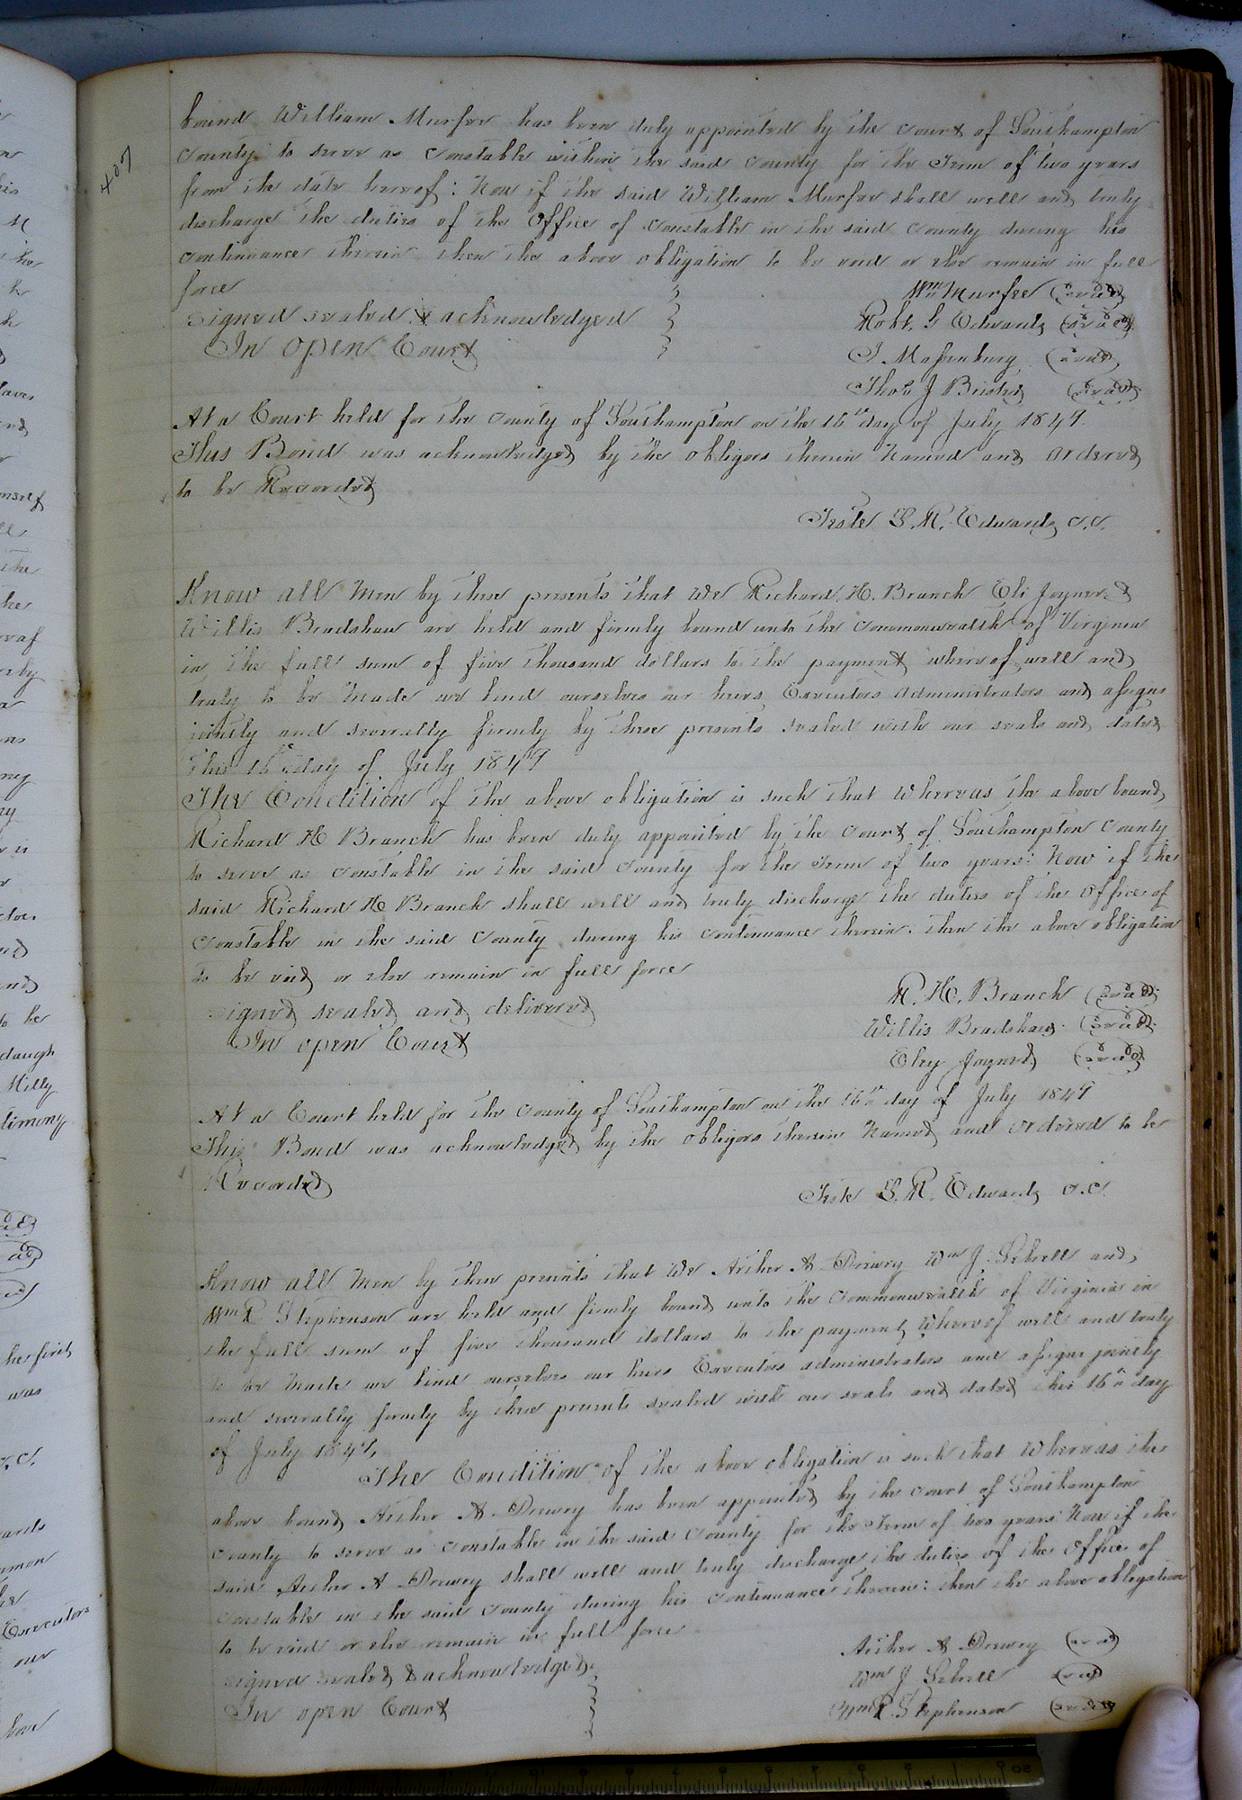 407
bound William Murfee has been duly appointed by the Court of Southampton
County to serve as Constable within the said County for the Term of two years
from the date hereof: Now if the said William Murfee shall well and truly
discharge the duties of the Office of Constable in the said County during his
continuance therein then the above obligation to be void or else remain in full
force
Wm Murfee (seal)
Signed sealed & acknowledged
Robt. G Edwards (seal)
In open Court
T. Massenburg (seal)
Thos J Bristed (seal)
At a Court held for the County of Southampton on the 16th day of July 1849.
This Bond was acknowledged by the obligors therein Named and ordered
to be Recorded
Teste L. R. Edwards C.C.
Know all Men by these presents that We Richard H. Branch Eli Joyner &
Willis Bradshaw are held and firmly bound unto the Commonwealth of Virginia
in the full sum of five thousand dollars to the payment whereof well and
truly to be Made we bind ourselves our heirs Executors administrators and assigns
jointly and severally firmly by these presents sealed with our seals and dated
this 16th day of July 1849
The Condition of the above obligation is such that Whereas the above bound
Richard H Branch has been duly appointed by the Court of Southampton County
to serve as Constable in the said County for the Term of two years: Now if the
said Richard H Branch shall well and truly discharge the duties of the Office of
Constable in the said County during his continuance therein. then the above obligation
to be void or else remain in full force
R. H. Branch (seal)
Signed sealed and delivered
Willis Bradshaw (seal)
In open Court
Eley Joyner (seal)
At a Court held for the County of Southampton on the 16th day of July 1849
This Bond was acknowledged by the obligors therein Named and ordered to be
Recorded
Teste L. R. Edwards C.C.
Know all Men by these presents that We Archer A Drewry Wm J. Sebrell and
Wm R Stephenson are held and firmly bound unto the Commonwealth of Virginia in
the full sum of five thousand dollars to the payment Whereof well and truly
to be Made we bind ourselves our heirs Executors administrators and assigns jointly
and severally firmly by these presents sealed with our seals and dated this 16th day
of July 1849.
The Condition of the above obligation is such that Whereas the
above bound Archer A Drewry has been appointed by the Court of Southampton
County to serve as Constable in the said County for the Term of two years Now if the
said Archer A Drewry shall well and truly discharge the duties of the Office of
Constable in the said County during his continuance therein: then the above obligation
to be void or else remain in full force
Archer A Drewry (seal)
Signed sealed & acknowledged.
Wm J Sebrell (seal)
In open Court
Wm R. Stephenson (seal)